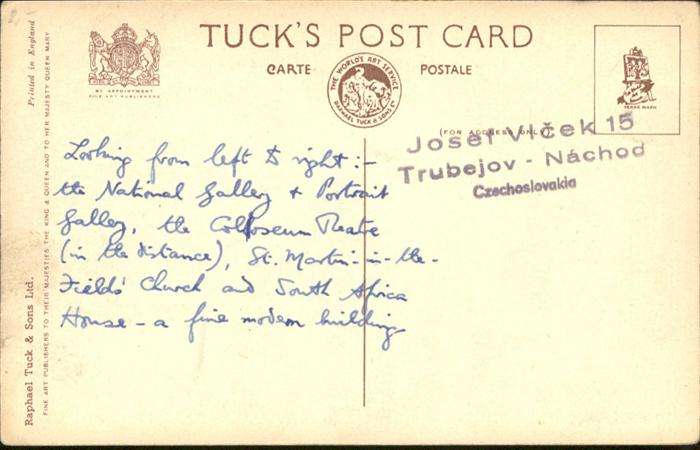 TUCK'S POST CARD
CARTE POSTALE
THE WORLD'S ART SERVICE
RAPHAEL TUCK & SONS LTD
BY APPOINTMENT
FINE ART PUBLISHERS
TRADE MARK
(FOR ADDRESS ONLY)
Josef Vlček 15
Trubejov - Náchod
Czechoslovakia
Looking from left to right :-
the National Gallery + Portrait
Gallery, the Colosseum Theatre
(in the distance), St. Martin-in-the-
Fields' Church and South Africa
House - a fine modern building
Printed in England
Raphael Tuck & Sons Ltd.
FINE ART PUBLISHERS TO THEIR MAJESTIES THE KING & QUEEN AND TO HER MAJESTY QUEEN MARY